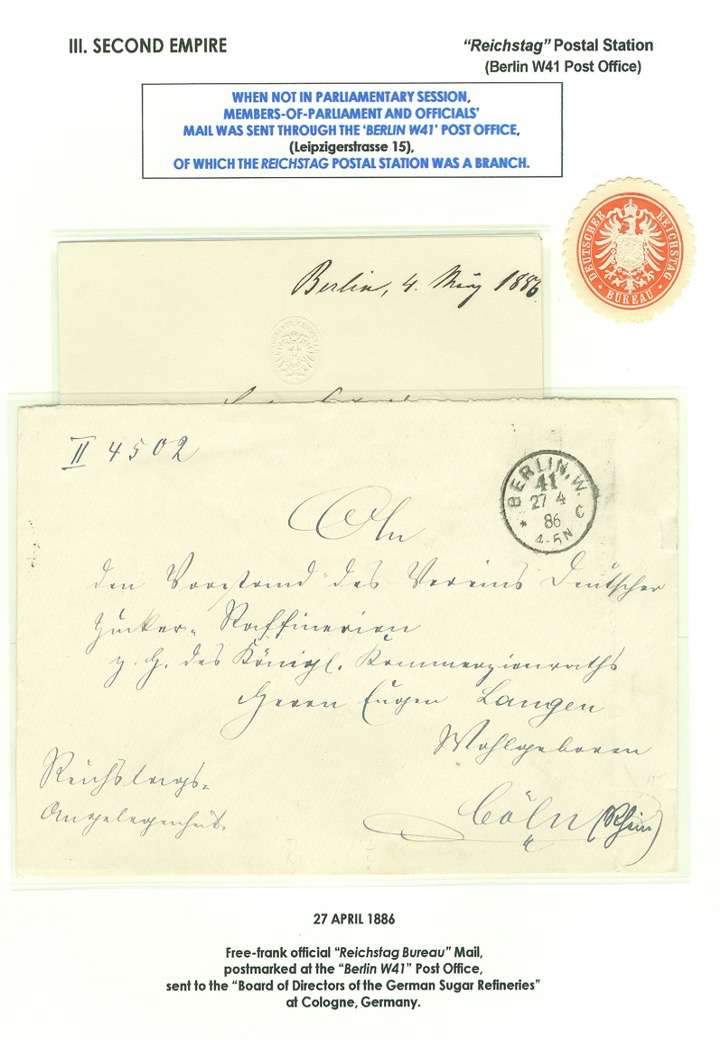 III. SECOND EMPIRE
“Reichstag” Postal Station
(Berlin W41 Post Office)
WHEN NOT IN PARLIAMENTARY SESSION,
MEMBERS-OF-PARLIAMENT AND OFFICIALS’
MAIL WAS SENT THROUGH THE ‘BERLIN W41’ POST OFFICE,
(Leipzigerstrasse 15),
OF WHICH THE REICHSTAG POSTAL STATION WAS A BRANCH.
DEUTSCHER REICHSTAG
• BUREAU •
Berlin, 4. May 1886
II 4502
BERLIN, W.
41
27 4
86
* 4-5N C
An
den Vorstand des Vereins Deutscher
Zucker-Raffinerien
z. H. des Königl. Kommerzienraths
Herrn Eugen Langen
Wohlgeboren
Reichstags-
Angelegenheit.
Cöln (Rhein)
27 APRIL 1886
Free-frank official “Reichstag Bureau” Mail,
postmarked at the “Berlin W41” Post Office,
sent to the “Board of Directors of the German Sugar Refineries”
at Cologne, Germany.